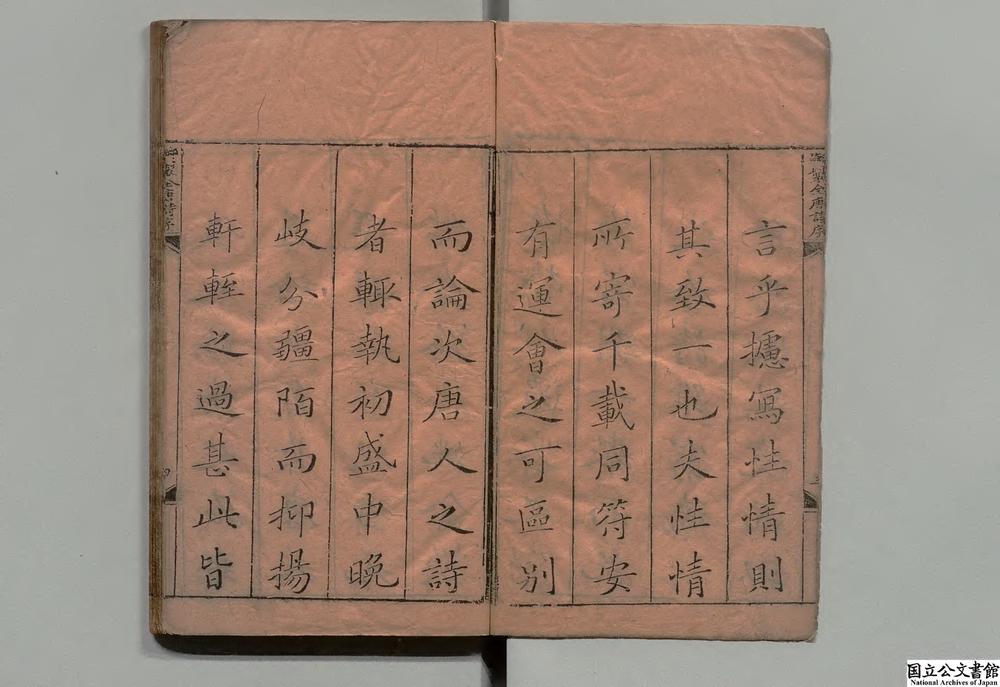 御製全唐詩序
言乎攄寫性情則
其致一也夫性情
所寄千載同符安
有運會之可區別
而論次唐人之詩
者輙執初盛中晚
岐分疆陌而抑揚
軒輊之過甚此皆
御製全唐詩序
四
国立公文書館
National Archives of Japan